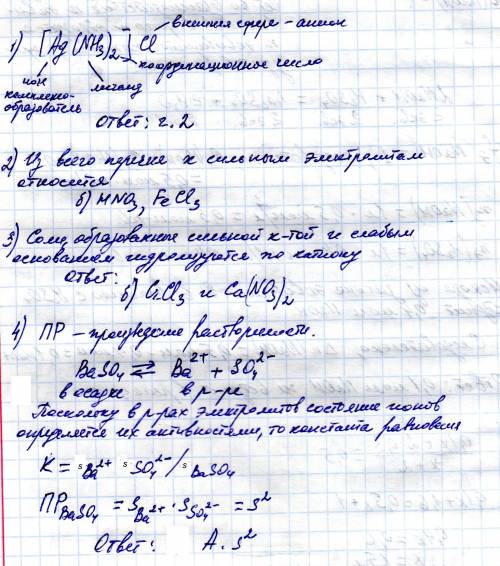 внешняя сфера - анион
1) [Ag(NH₃)₂]Cl
координационное число
ион комплексо-
образователь
лиганд
Ответ: г. 2
2) Из всего перечня к сильным электролитам
относится
б) HNO₃, FeCl₃
3) Соли, образованные сильной к-той и слабым
основанием гидролизуются по катиону
Ответ:
б) CrCl₃ и Ca(NO₃)₂
4) ПР - произведение растворимости.
BaSO₄ ⇄ Ba²⁺ + SO₄²⁻
в осадке в р-ре
Поскольку в р-рах электролитов состояние ионов
определяется их активностями, то константа равновесия
K = sBa²⁺ sSO₄²⁻ / sBaSO₄
ПР BaSO₄ = SBa²⁺ · SSO₄²⁻ = S²
Ответ: А. s²